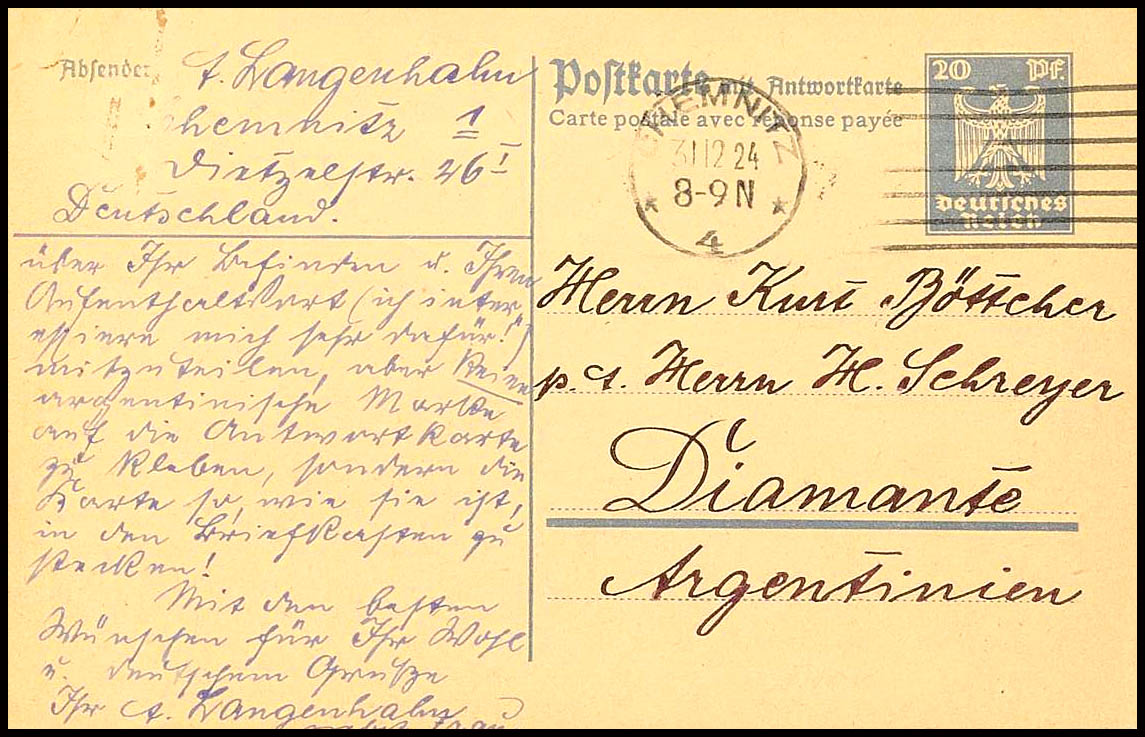 Absender
A. Langenhahn
Chemnitz 1
Dietzelstr. 26 I
Deutschland.
über Ihr Befinden u. Ihren
Aufenthaltsort (ich inter
essiere mich sehr dafür!)
mitzuteilen, aber keine
argentinische Marke
auf die Antwortkarte
zu kleben, sondern die
Karte so, wie sie ist,
in den Briefkasten zu
stecken!
Mit den besten
Wünschen für Ihr Wohl
u. deutschem Grusze
Ihr A. Langenhahn
Postkarte mit Antwortkarte
Carte postale avec réponse payée
CHEMNITZ
31 12 24
8-9 N
* *
4
20 Pf.
Deutsches
Reich
Herrn Kurt Böttcher
p. A. Herrn H. Schreyer
Diamante
Argentinien